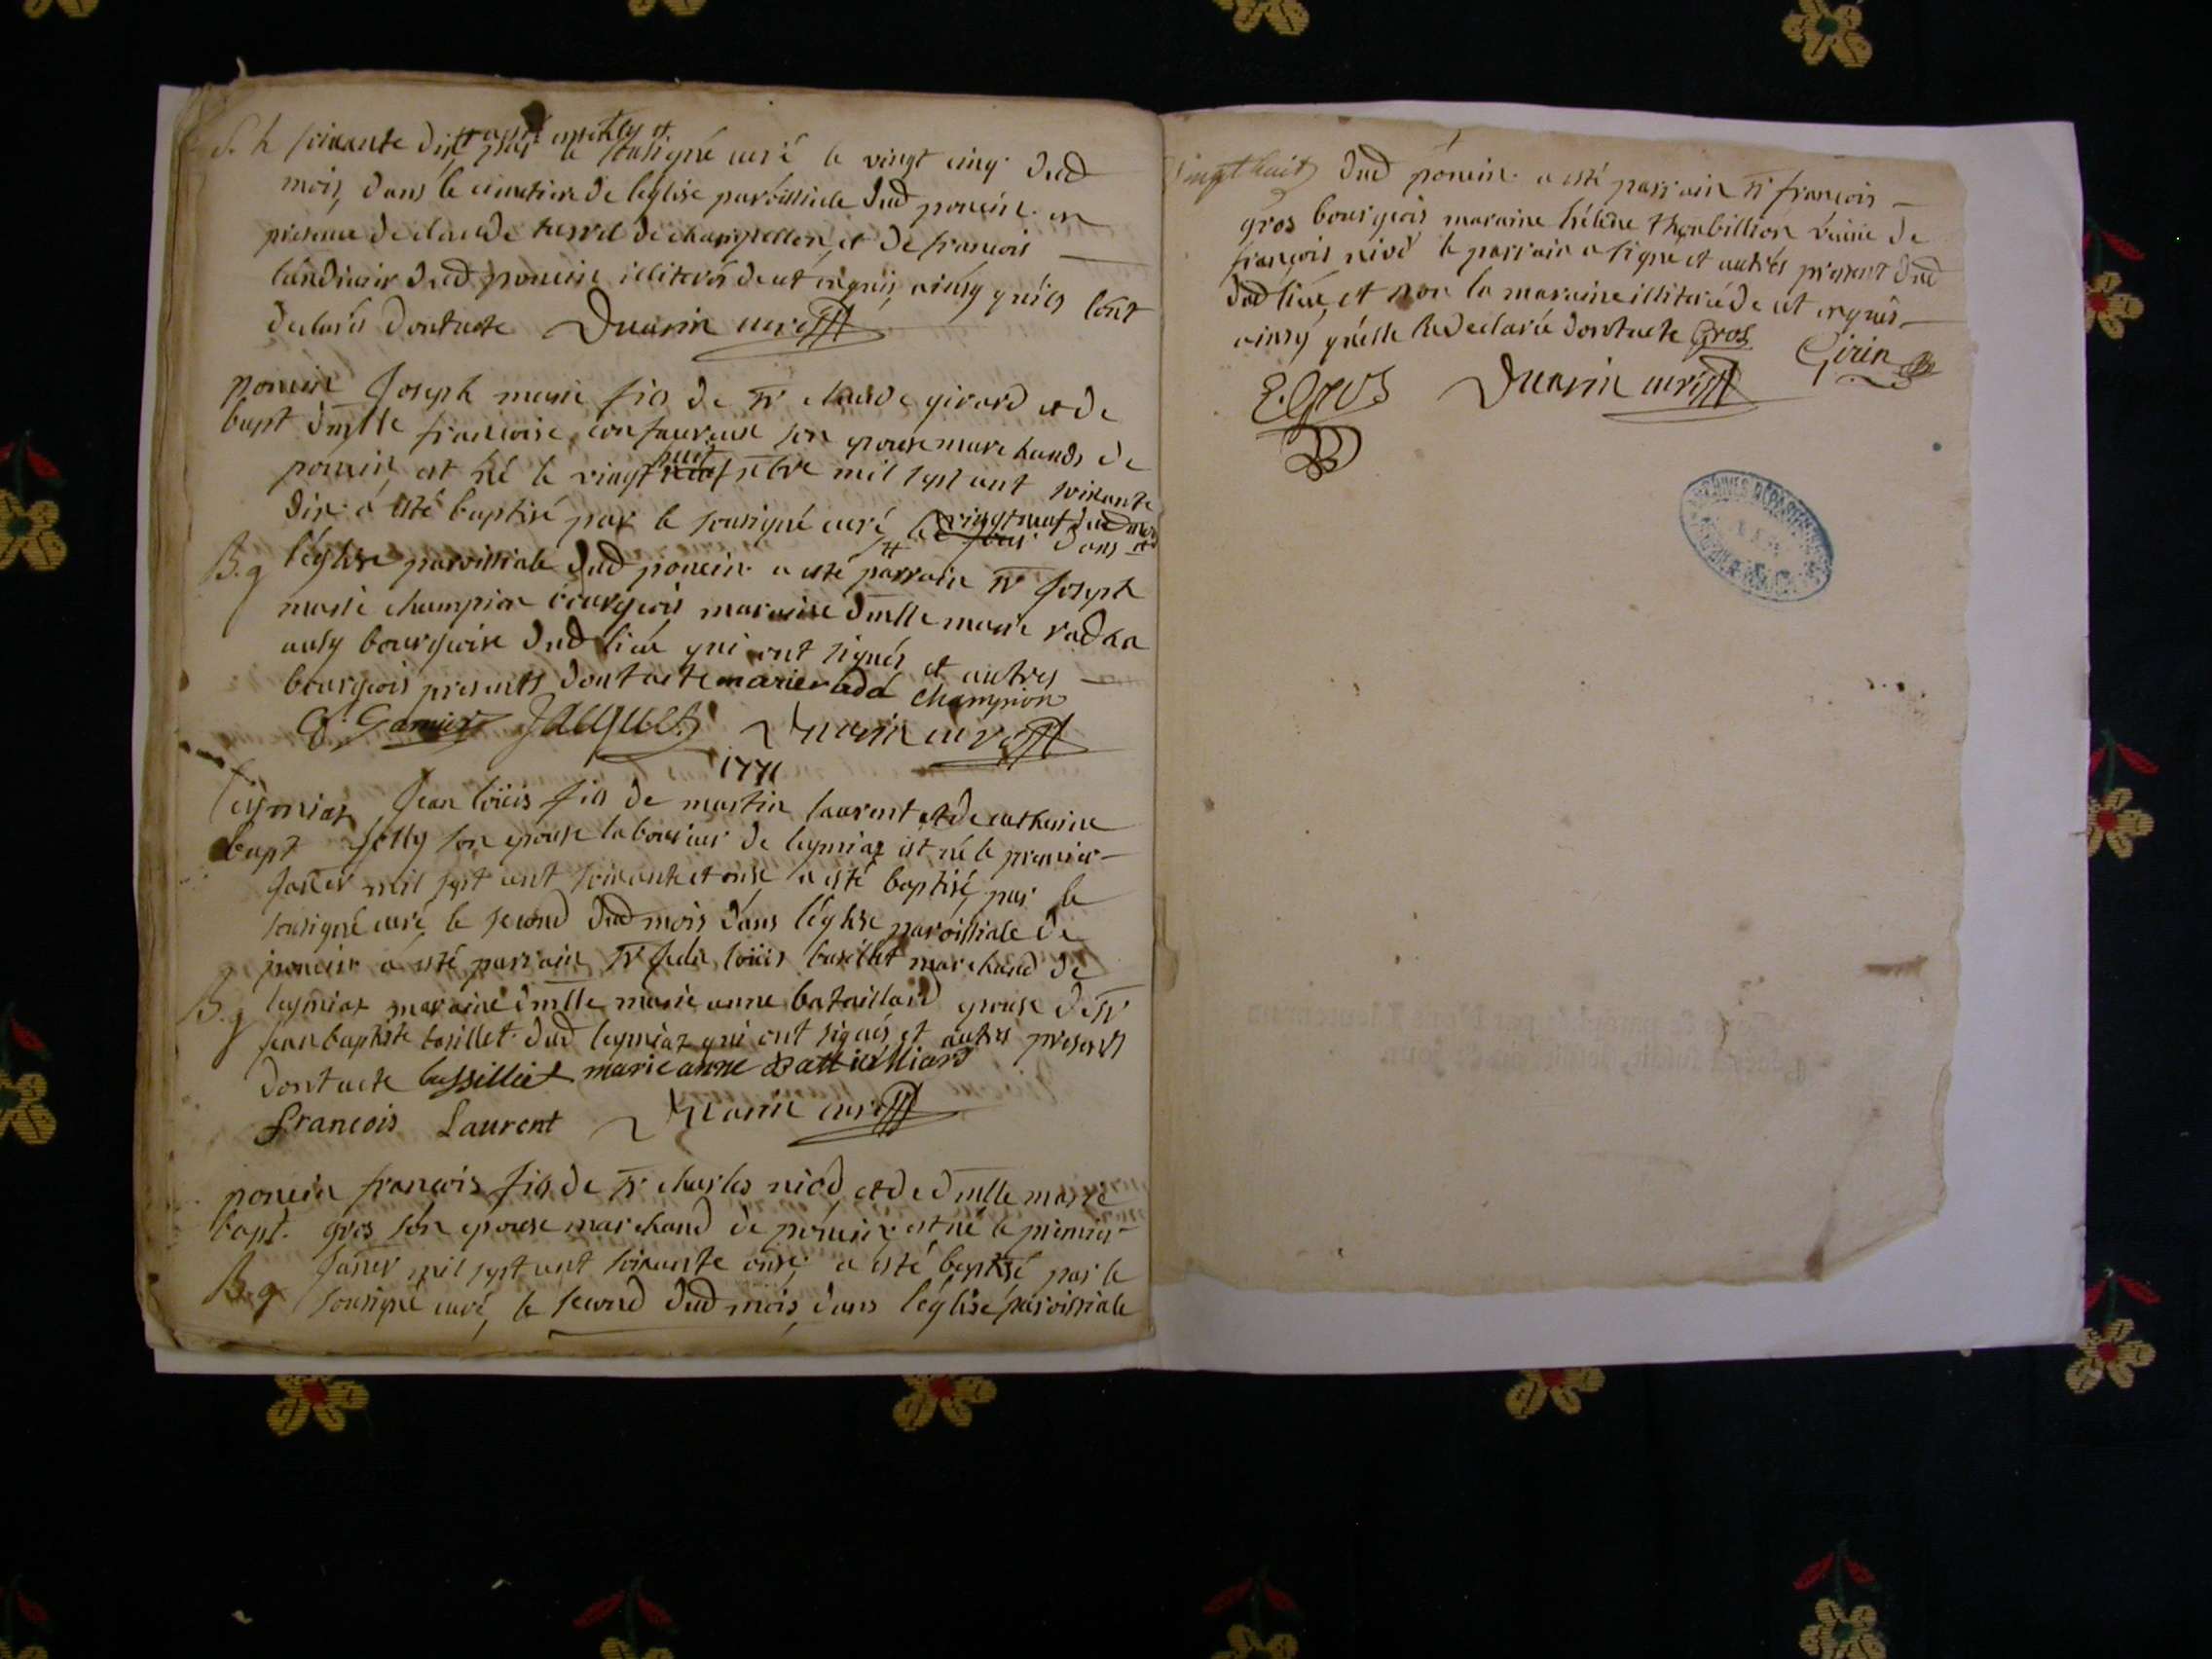 S. h soixante dix a esté ensevely et
par le sousigné curé le vingt cinq dud
mois, dans le cimetiere de l'eglise paroissiale dud poncin en
presence de claude de champollon, et de francois
dud poncin illiterés de ce enquis, ainsy qu'ils l'ont
declarés dont acte Duarin curé
poncin Joseph marie fils de sr claude girard et de
bapt dmlle francoise son epouse marchands de
poncin, est né le vingt huit xbre mil sept cent soixante
dix a esté baptisé par le sousigné curé le vingt neuf dud mois
dans
B. g l'eglise paroissiale dud poncin a esté parrain sr Joseph
marie champion bourgeois maraine dmlle marie
ausy bourgeoise dud lieu qui ont signés et autres
bourgeois presents dont acte marie champion
Garnier Jacquet Duarin curé
1771
leymiaz Jean loüis fils de martin laurent et de catherine
bapt Jolly son epouse laboureur de leymiaz est né le premier
Janer mil sept cent soixante et onse a esté baptisé, par le
sousigné curé, le second dud mois dans l'eglise paroissiale de
poncin a esté parrain sr Jean loüis basillet marchand de
B. g leymiaz maraine dmlle marie anne bataillard epouse de sr
Jean baptiste basillet dud leymiaz qui ont signés, et autres presents
dont acte bassilliet marie anne battailliard
francois Laurent Duarin curé
poncin francois fils de sr charles niod, et de dmlle marie
bapt. gros son epouse marchand de poncin est né le premier
Janer mil sept cent soixante onse, a esté baptisé par le
B. g sousigné curé, le second dud mois, dans l'eglise paroissiale
vingt huit dud poncin a esté parrain sr francois
gros bourgeois maraine hélène thonbillion veuve de
francois niod le parrain a signé et autres present dud
dud lieu, et non la maraine illiterée de ce enquis
ainsy qu'elle la declaré dont acte Gros Girin
E. Gros Duarin curé